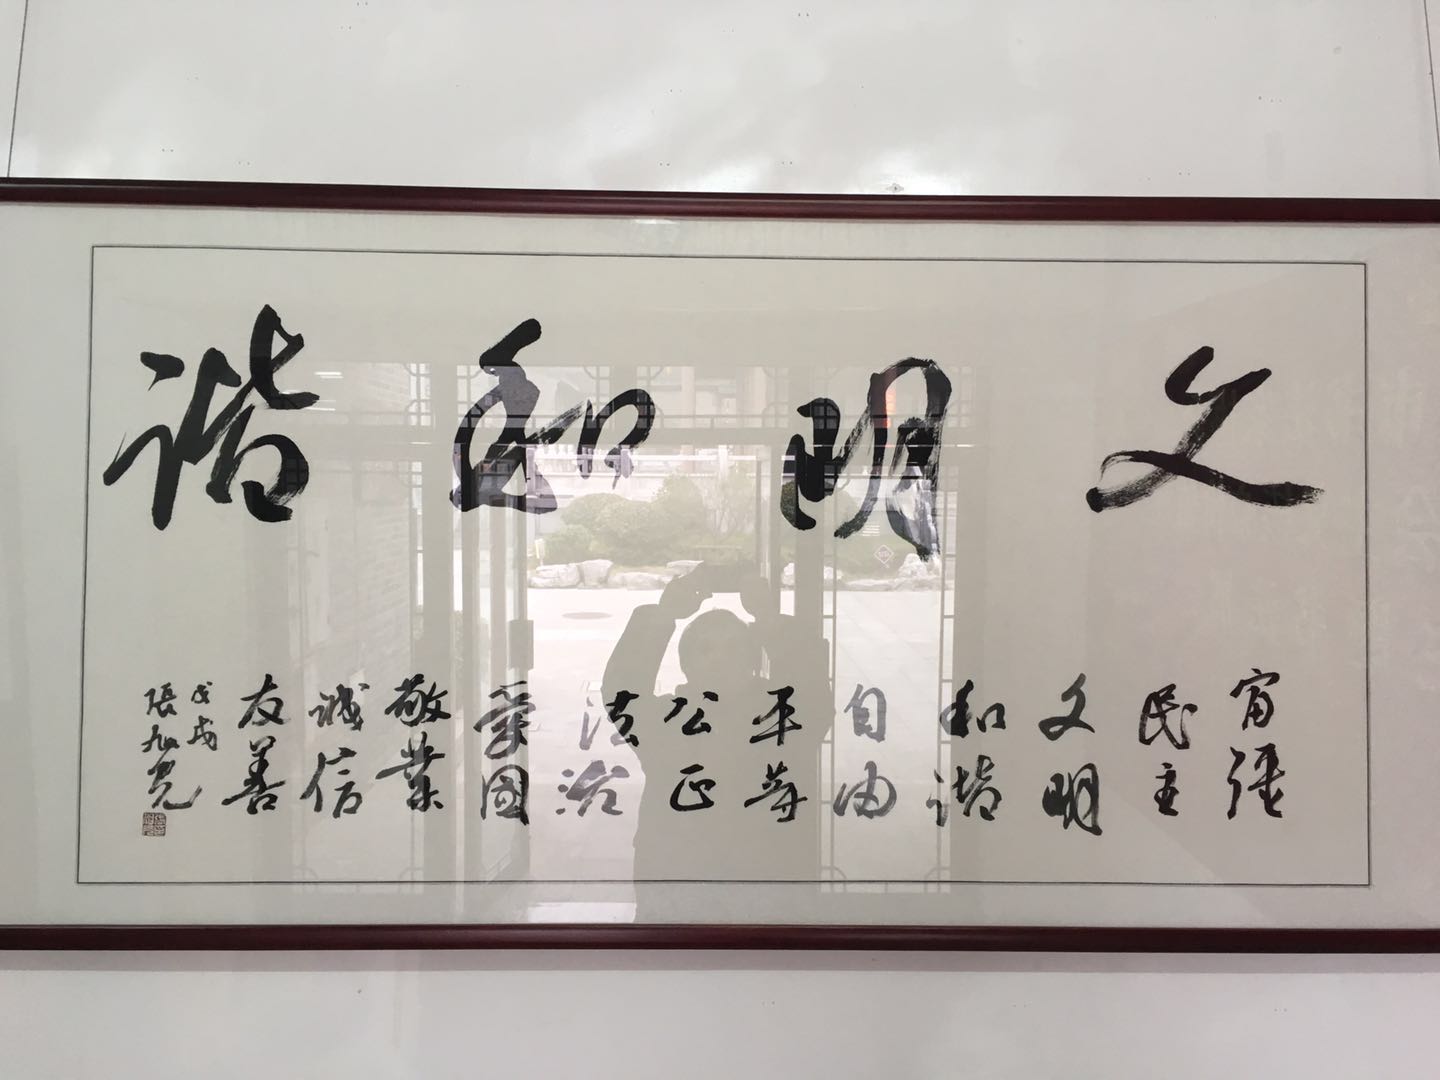 文明和谐
富强
民主
文明
和谐
自由
平等
公正
法治
爱国
敬业
诚信
友善
戊戌
张旭光